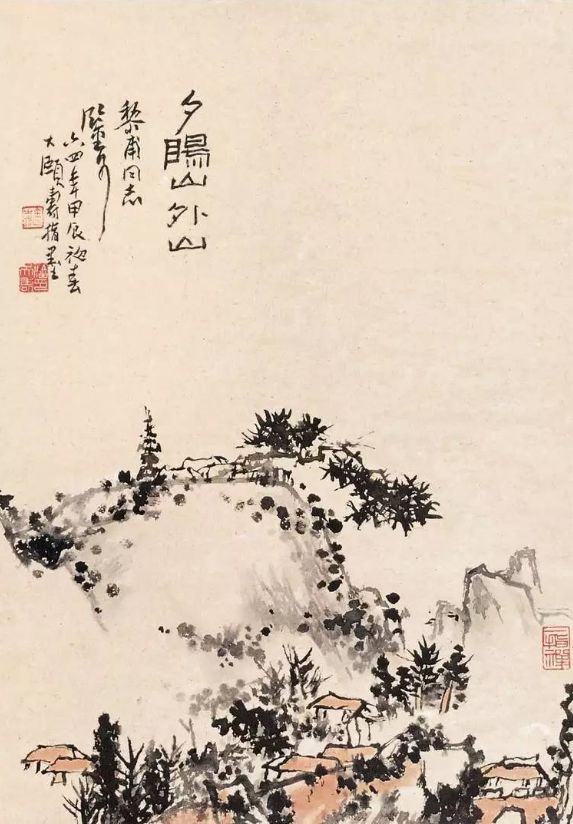 夕陽山外山
黎甫同志
鑒
六四年甲辰初春
大頤壽指墨
一指禪